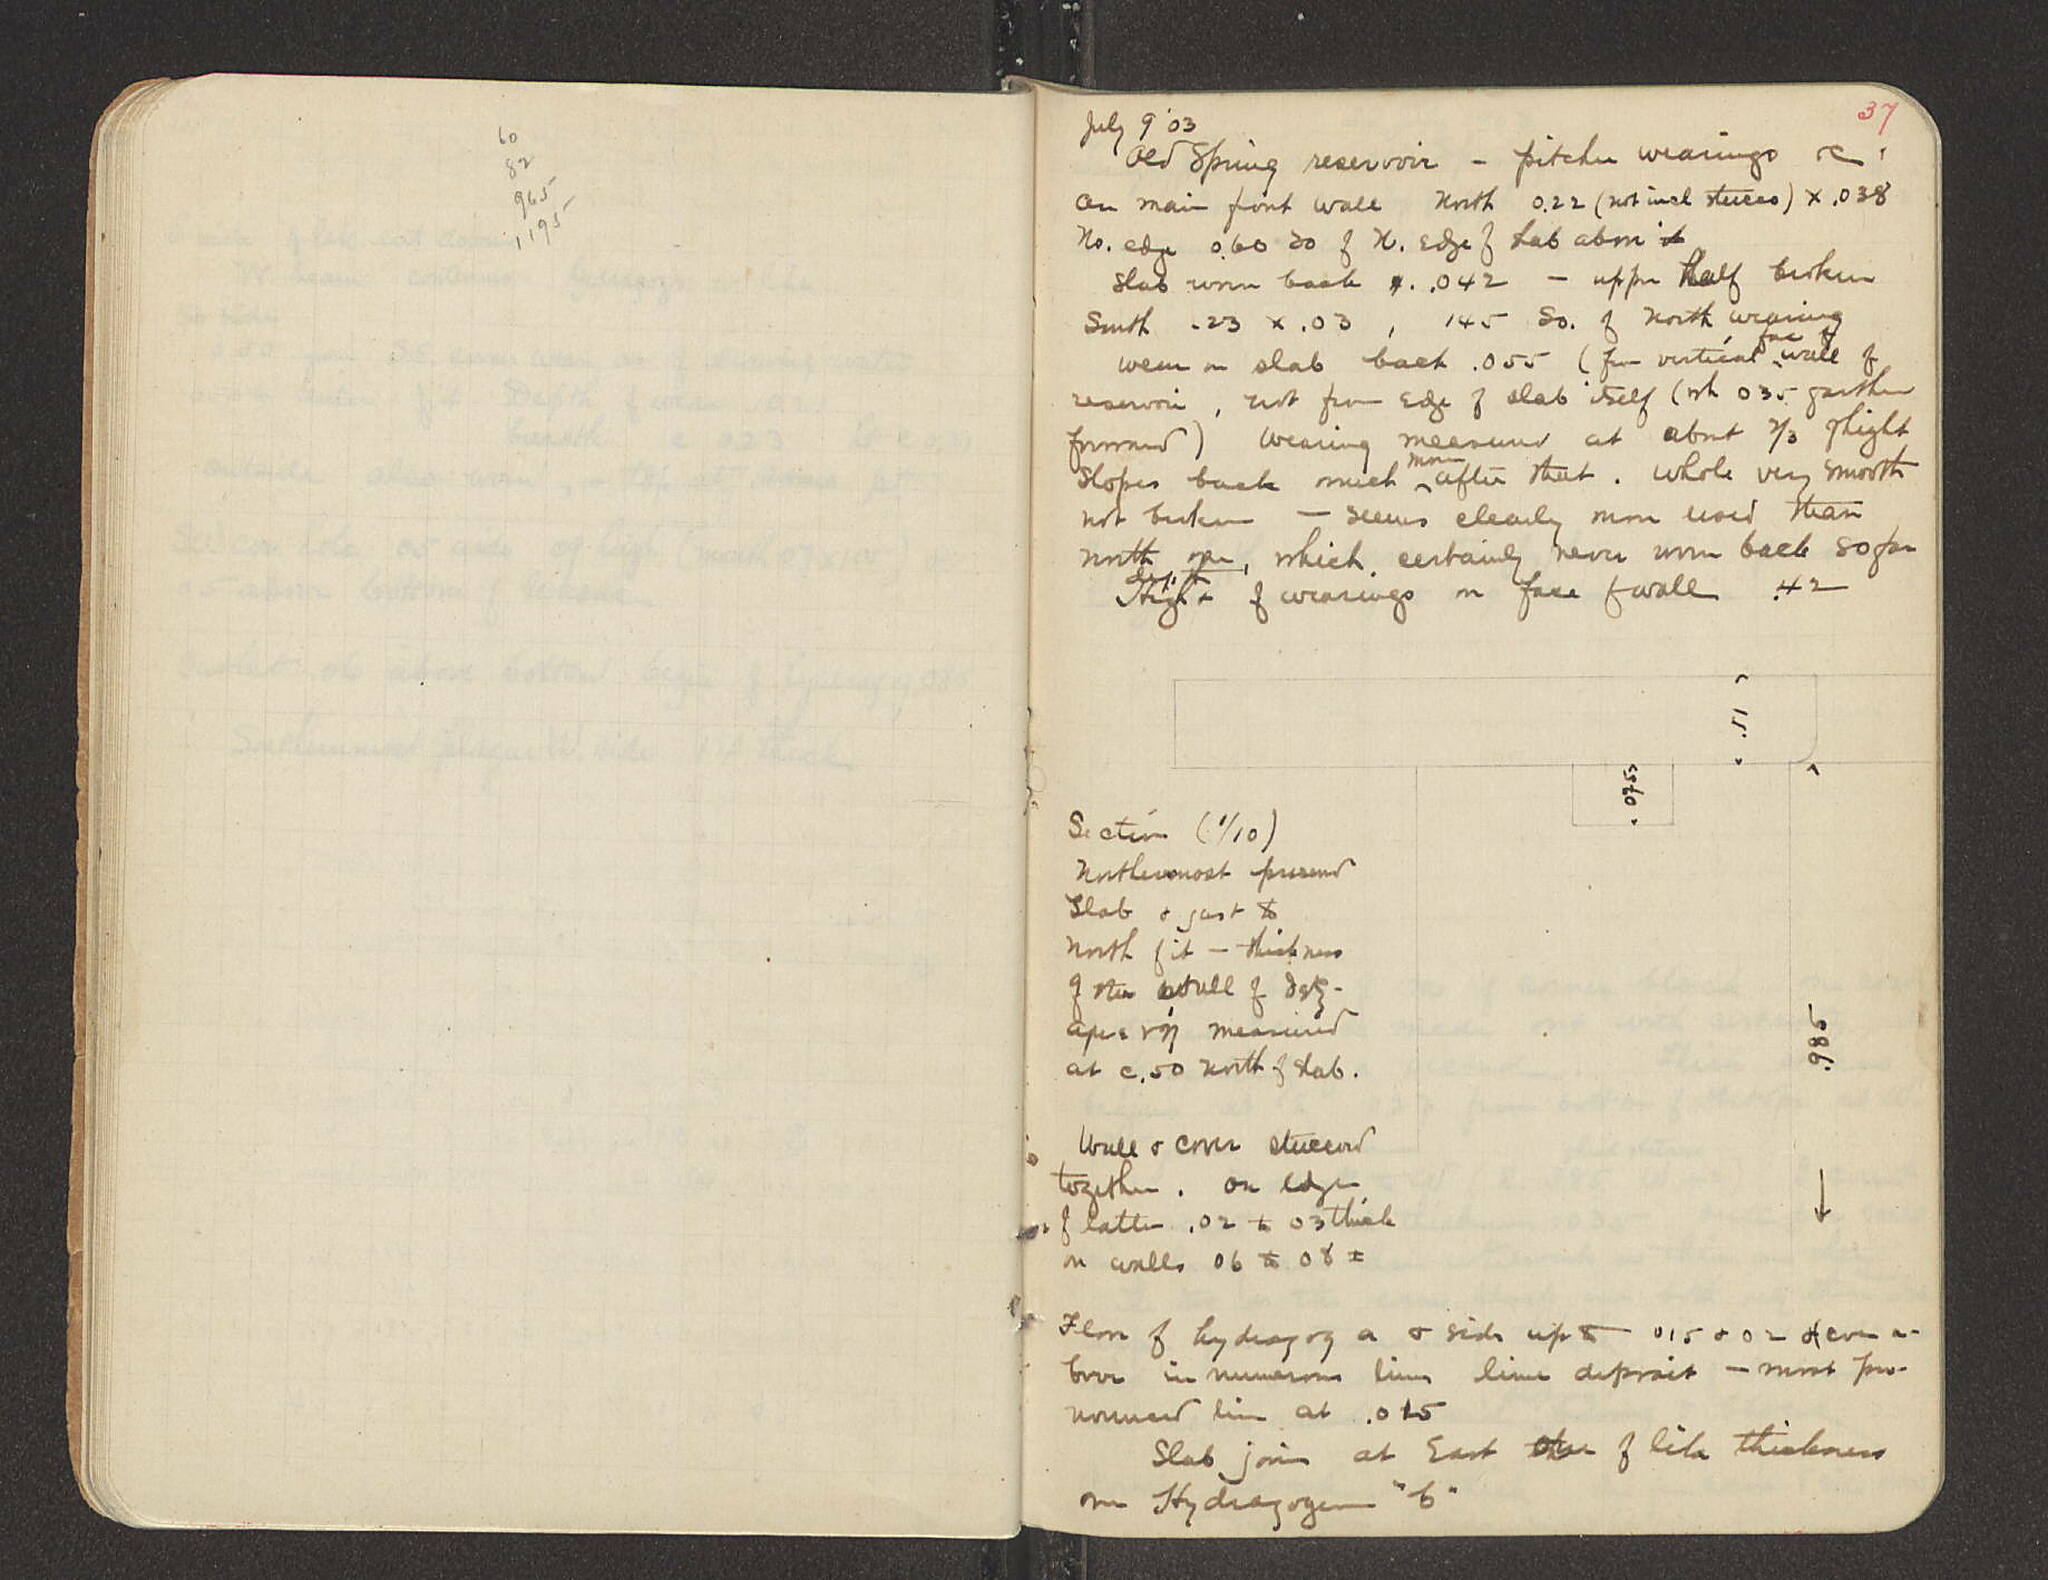 60
82
965
1195
37
July 9 '03
Old Spring reservoir - pitcher wearings &c.
On main front wall North 0.22 (not incl stucco) x .038
No. edge 0.60 So of N. edge of slab above it
Slab worn back .042 - upper half broken
South .23 x .03, 145 So. of North wearing
wear on slab back .055 (from vertical face of wall of
reservoir, not from edge of slab itself (wh 035 farther
forward) Wearing measured at about 2/3 of hight
Slopes back much more after that. Whole very smooth
not broken - seems clearly more used than
north one, which certainly never worn back so far
Hight of wearings on face of wall .42
.51
.075
Section (1/10)
Northernmost preserved
Slab & just to
North of it - thickness
of the wall of
measured
at c.50 North of slab.
.985
Wall & cover stuccoed
together. On edge
of latter .02 to 03 thick
on walls 06 to 08 ±
Floor of hydragog a & side up to 015 & 02 & even a-
bove in numerous lines lime deposit - most pro-
nounced line at .015
Slab join at East of like thickness
on Hydragogen "b"